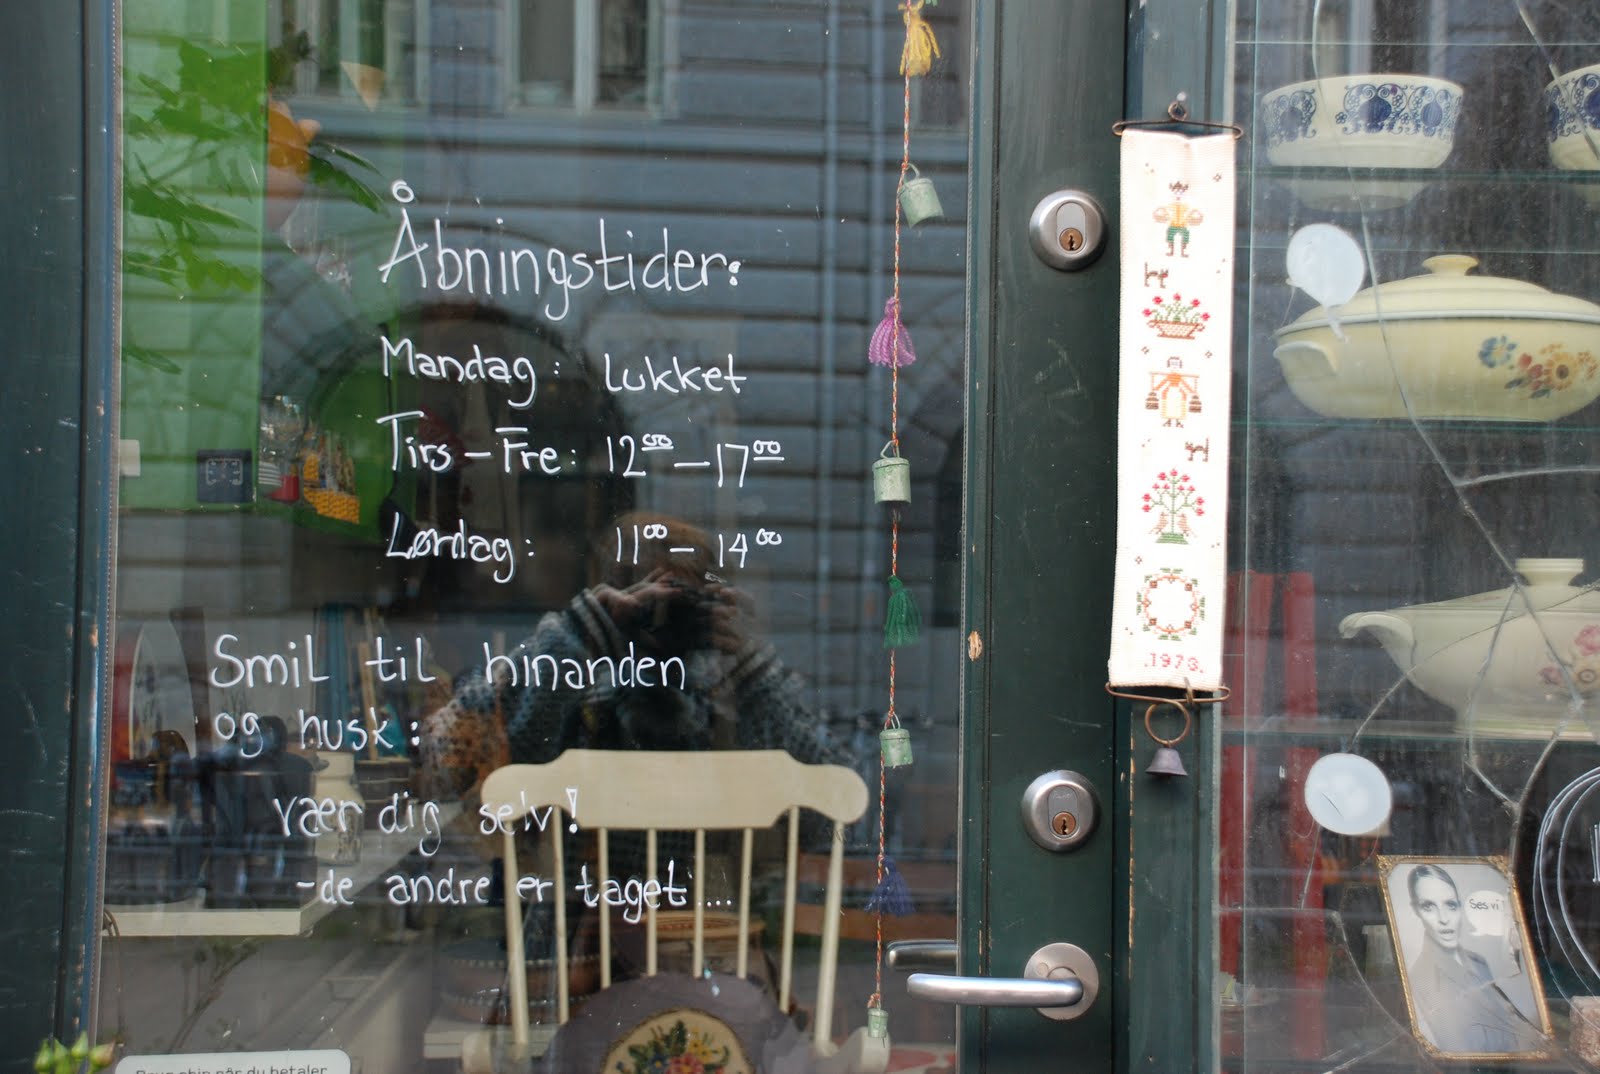 Åbningstider:
Mandag: Lukket
Tirs-Fre: 12⁰⁰-17⁰⁰
Lørdag: 11⁰⁰-14⁰⁰
Smil til hinanden
og husk:
vær dig selv!
-de andre er taget....
.1978.
Ses vi?
Brug chip når du betaler